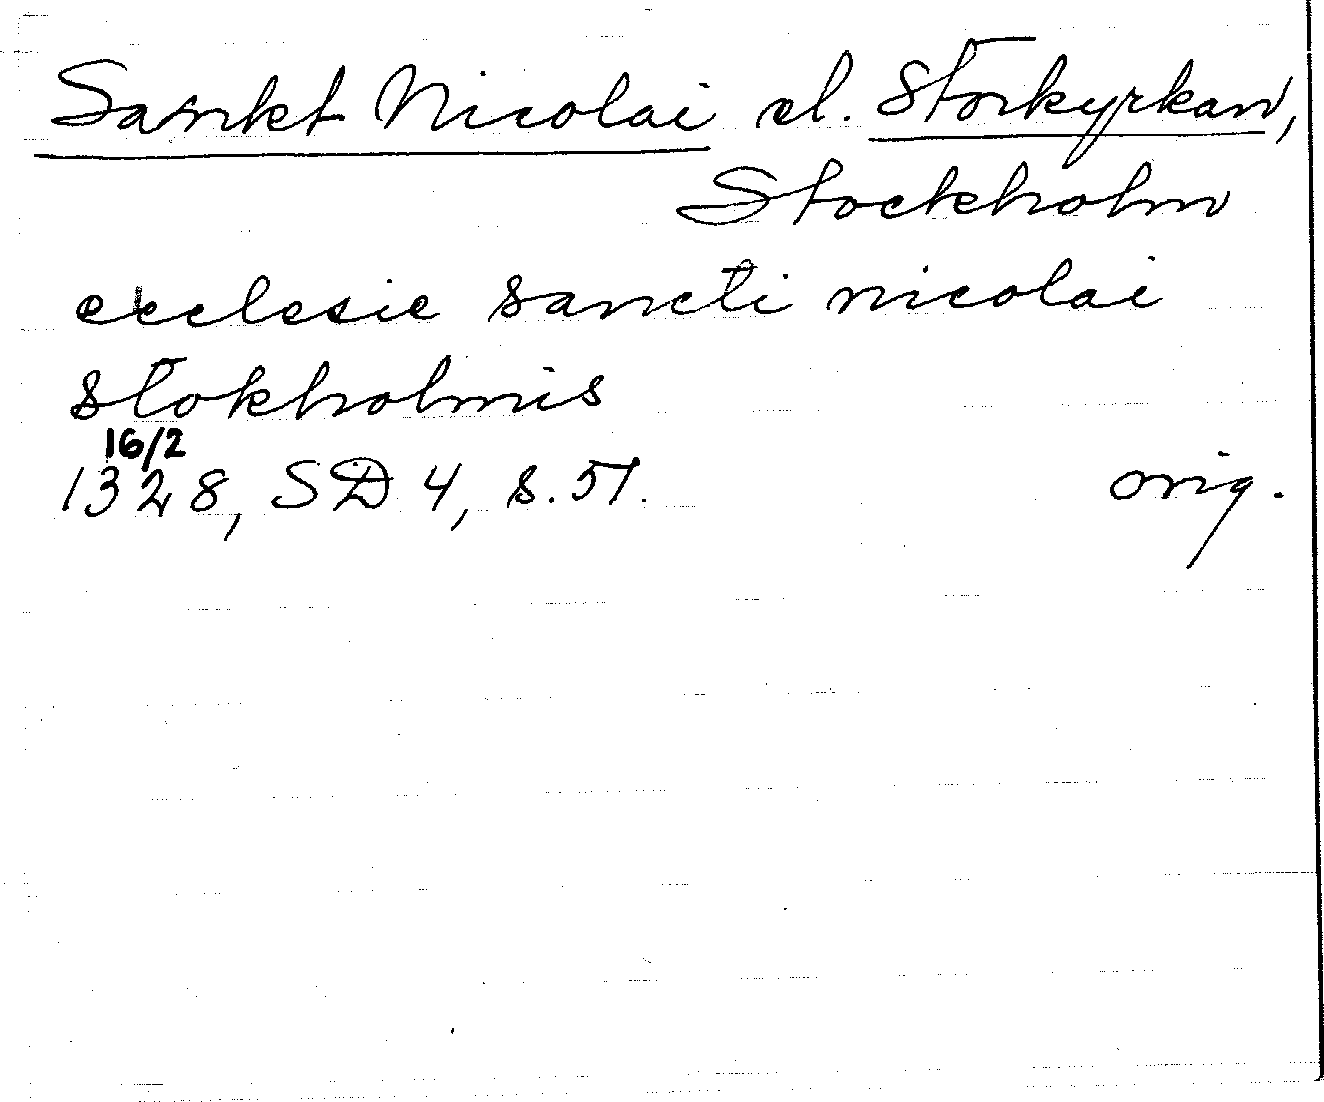 Sankt Nicolai el. Storkyrkan,
Stockholm
ecclesie sancti nicolai
stokholmis
16/2
1328, SD 4, s. 57. orig.